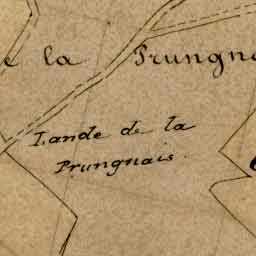 e la Prungna
Lande de la
Prungnais.